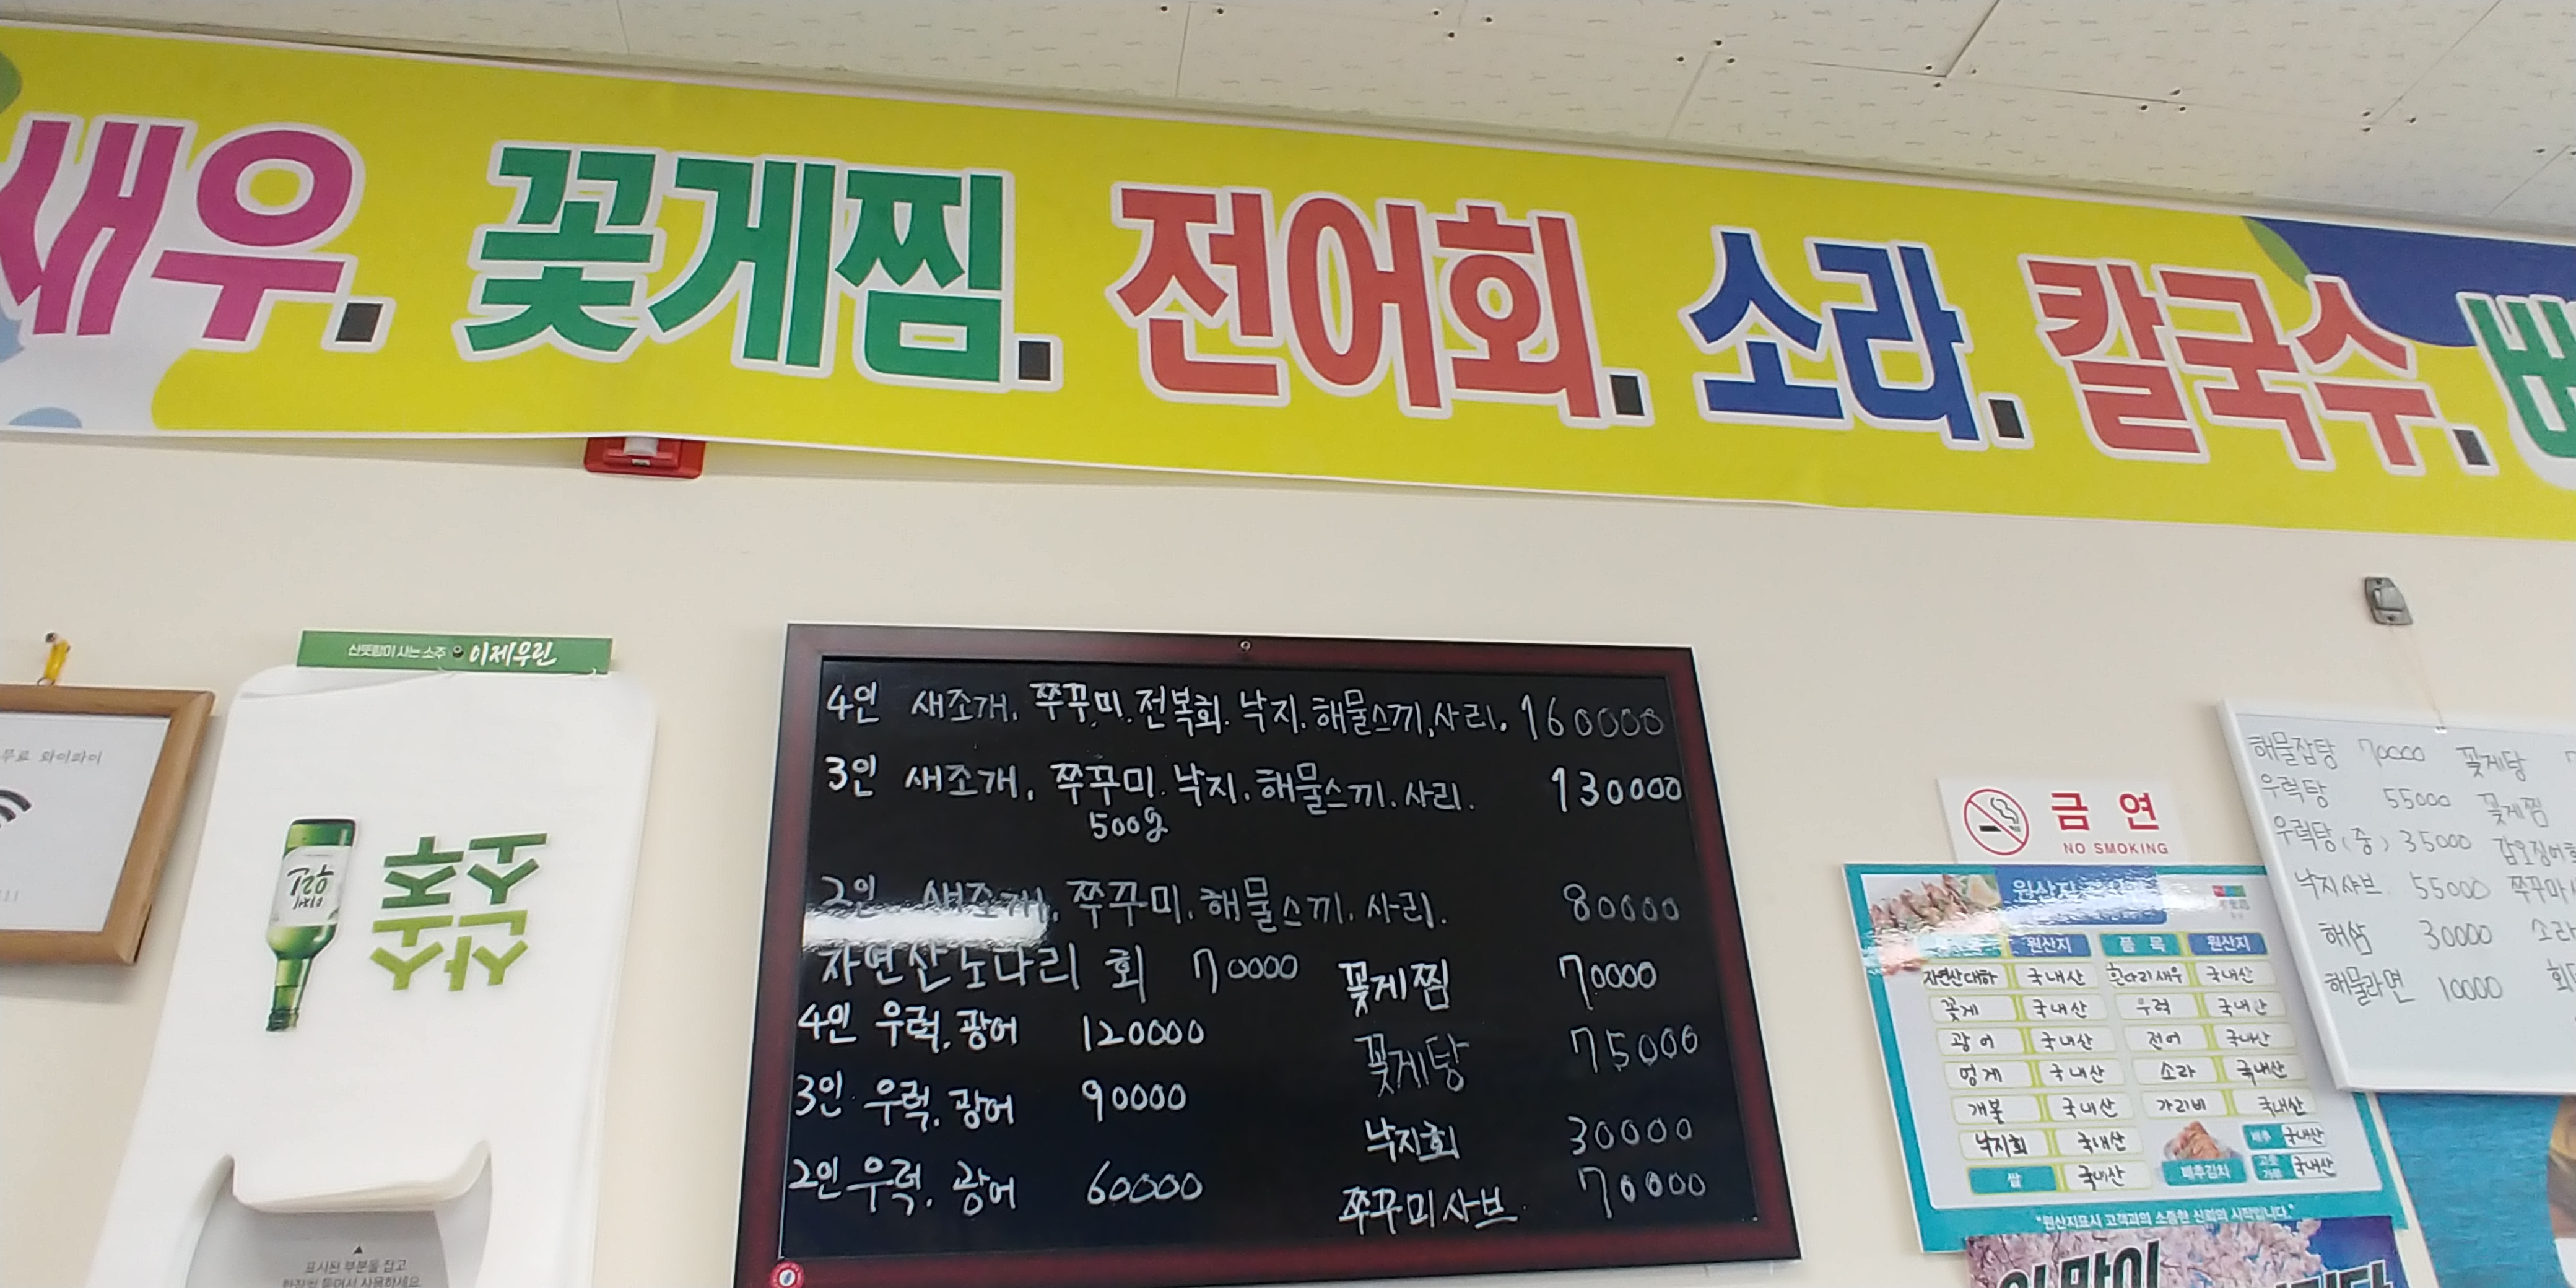 새우. 꽃게찜. 전어회. 소라. 칼국수.
산뜻함이 사는 소주 이제우린
무료 와이파이
산소
소주
이제우린
표시된 부분을 접고
4인 새조개. 쭈꾸미. 전복회. 낙지. 해물스끼. 사리. 160000
3인 새조개. 쭈꾸미. 낙지. 해물스끼. 사리. 130000
500g
2인 새조개. 쭈꾸미. 해물스끼. 사리. 80000
자연산노다리 회 70000 꽃게찜 70000
4인 우럭. 광어 120000 꽃게탕 75000
3인 우럭. 광어 90000 낙지회 30000
2인 우럭. 광어 60000 쭈꾸미샤브 70000
금연
NO SMOKING
원산지 품목 원산지
자연산대하 국내산 흰다리새우 국내산
꽃게 국내산 우럭 국내산
광어 국내산 전어 국내산
멍게 국내산 소라 국내산
개불 국내산 가리비 국내산
낙지회 국내산 배추 국내산
쌀 국내산 배추김치 국내산
"원산지표시 고객과의 소중한 신뢰의 시작입니다."
해물잡탕 70000 꽃게탕
우럭탕 55000 꽃게찜
우럭탕(중) 35000 갑오징어
낙지샤브 55000 쭈꾸미
해삼 30000 소라
해물라면 10000